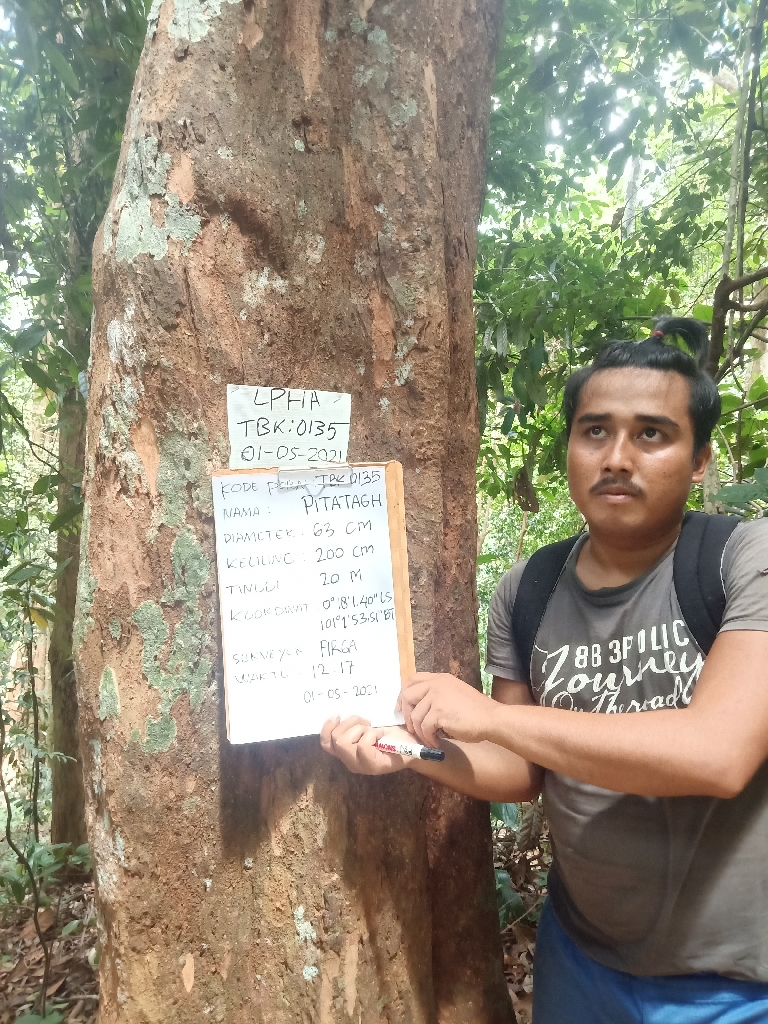 LPHA
TBK:0135
01-05-2021
KODE TBK 0135
NAMA : PITATAGH
DIAMETER : 63 CM
KELILING : 200 CM
TINGGI 20 M
KOORDINAT 0°18'1.40" LS
101°1'53.51" BT
SURVEYOR FIRGA
WAKTU : 12.17
01-05-2021
SNOWMAN
Journey
On the road